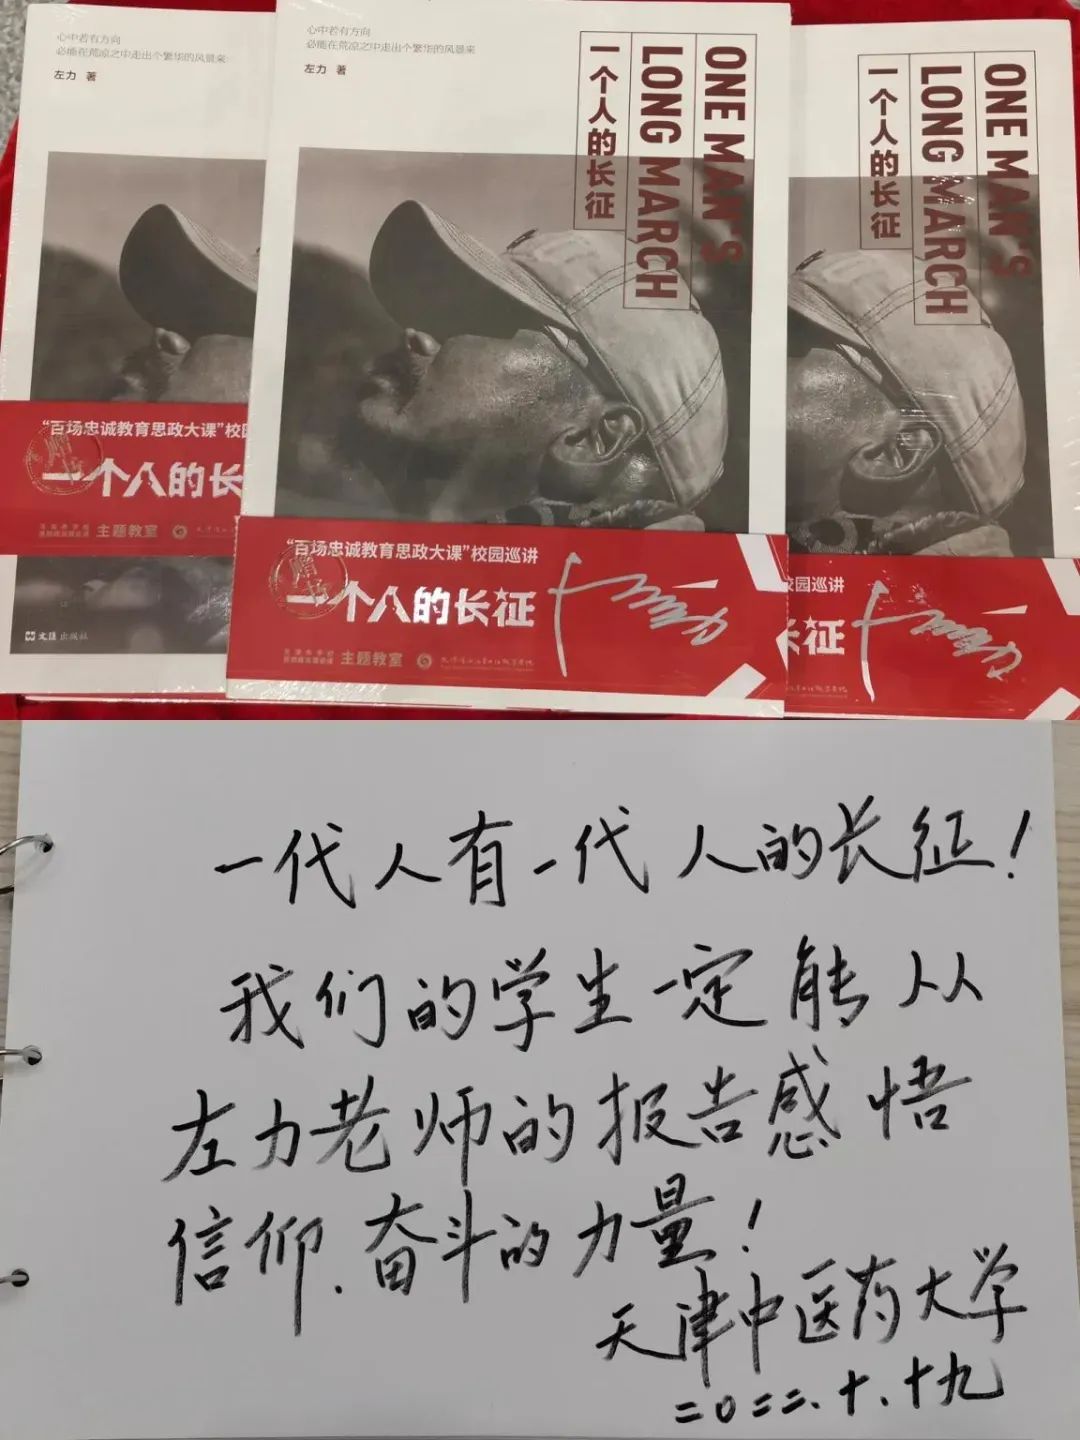 心中若有方向
必能在荒凉之中走出个繁华的风景来
左力 著
"百场忠诚教育思政大课"校园
一个人的长
主题教室
文汇出版社
心中若有方向
必能在荒凉之中走出个繁华的风景来
左力 著
ONE MAN'S
LONG MARCH
一个人的长征
"百场忠诚教育思政大课"校园巡讲
一个人的长征
主题教室
ONE MAN'S
LONG MARCH
一个人的长征
校园巡讲
长征
一代人有一代人的长征！
我们的学生一定能从
左力老师的报告感悟
信仰、奋斗的力量！
天津中医药大学
二〇二二、十、十九